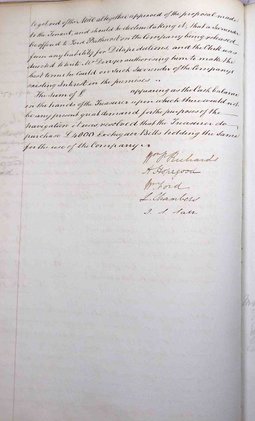 to get out of the title altogether approved of the proposal made
to the Tenant and should he decline taking it, that a Surrender
be offered to Lord Bathurst on the Company being released
from any liability for Dilapidations and the Clerk was
directed to write Mr. authorizing him to make the
best terms he could on such Surrender of the Company's
existing interest in the premises.
The Sum of £ appearing as the Cash balance
in the hands of the Treasurer upon which there would not
be any present demand for the purposes of the
navigation it was resolved that the Treasurer do
purchase £4000 Exchequer Bills holding the same
for the use of the Company.
Wm P. Richards
A. Hopgood
Wm Ford
L. Chambers